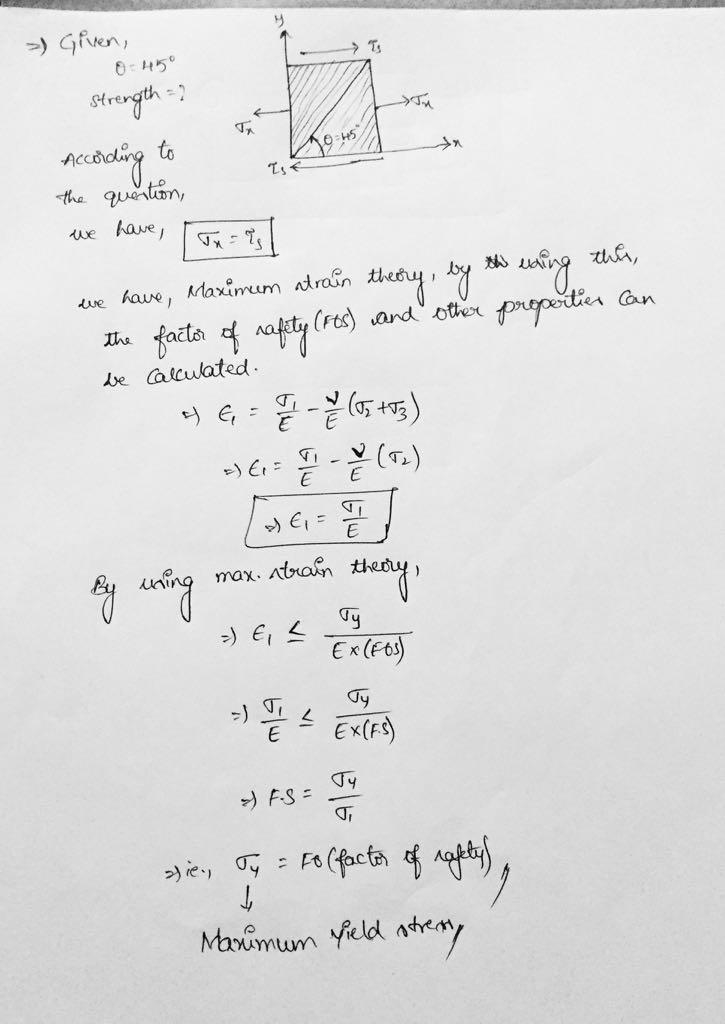 =) Given,
θ = 45°
strength = ?
y
τs
σx
σx
θ=45°
x
τs
According to
the question,
we have, σx = τs
we have, Maximum strain theory, by using this,
the factor of safety (FOS) and other properties can
be calculated.
=) ϵ₁ = σ₁/E - ν/E (σ₂ + σ₃)
=) ϵ₁ = σ₁/E - ν/E (σ₂)
=) ϵ₁ = σ₁/E
By using max. strain theory,
=) ϵ₁ ≤ σy/E×(FOS)
=) σ₁/E ≤ σy/E×(F.S)
=) F.S = σy/σ₁
=) ie., σy = FO (factor of safety),
↓
Maximum yield stress,